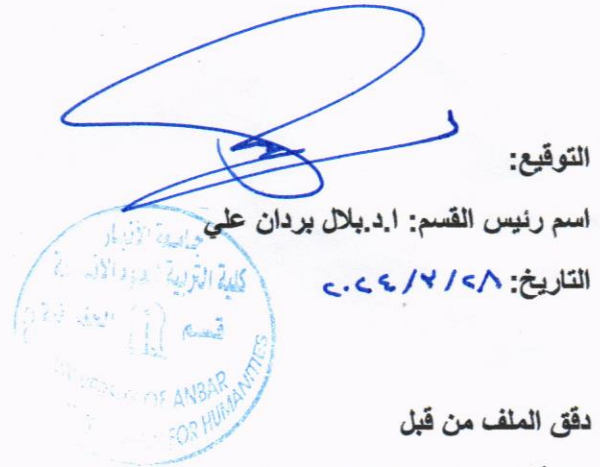 التوقيع:
اسم رئيس القسم: ا.د.بلال بردان علي
التاريخ: ٢٠٢٤/٢/٢٨
جامعة الانبار
كلية التربية للعلوم الانسانية
قسم
UNIVERSITY OF ANBAR
FOR HUMANITIES
دقق الملف من قبل